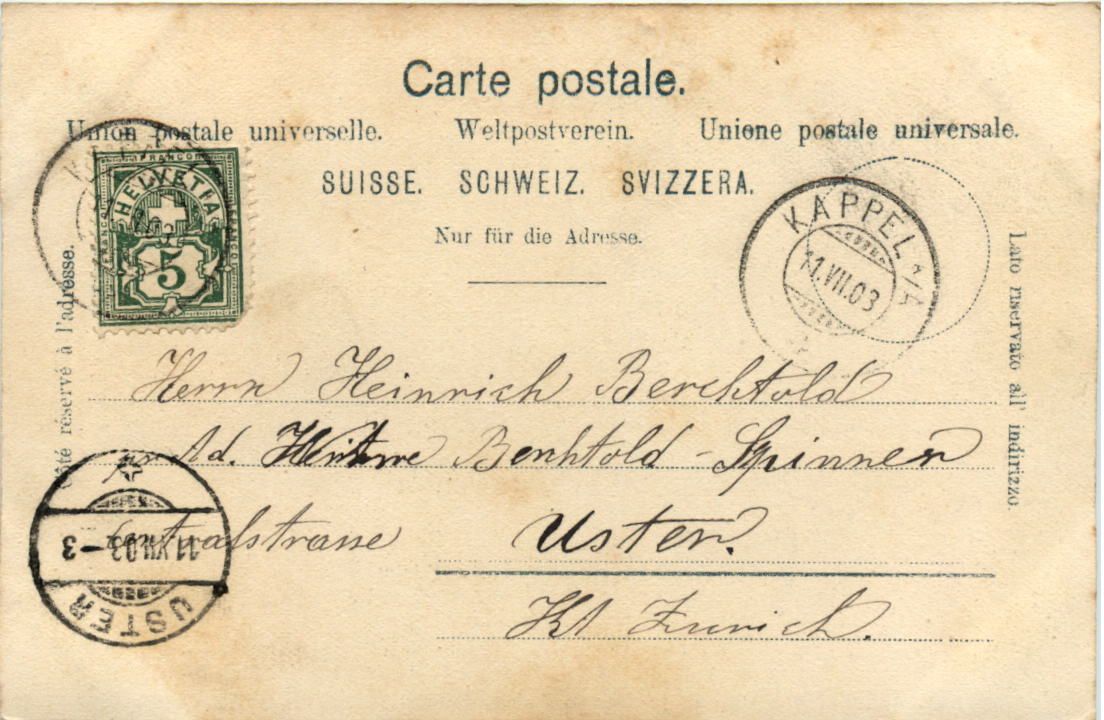 Carte postale.
Union postale universelle. Weltpostverein. Unione postale universale.
SUISSE. SCHWEIZ. SVIZZERA.
Nur für die Adresse.
Côté réservé à l'adresse.
Lato riservato all' indirizzo.
FRANCO
HELVETIA
5
KAPPEL
11.VII.03
Herrn Heinrich Berchtold
Ad. Berchtold-Spinner
Centralstrasse Uster.
Kt Zürich.
11.VII.03-3
USTER